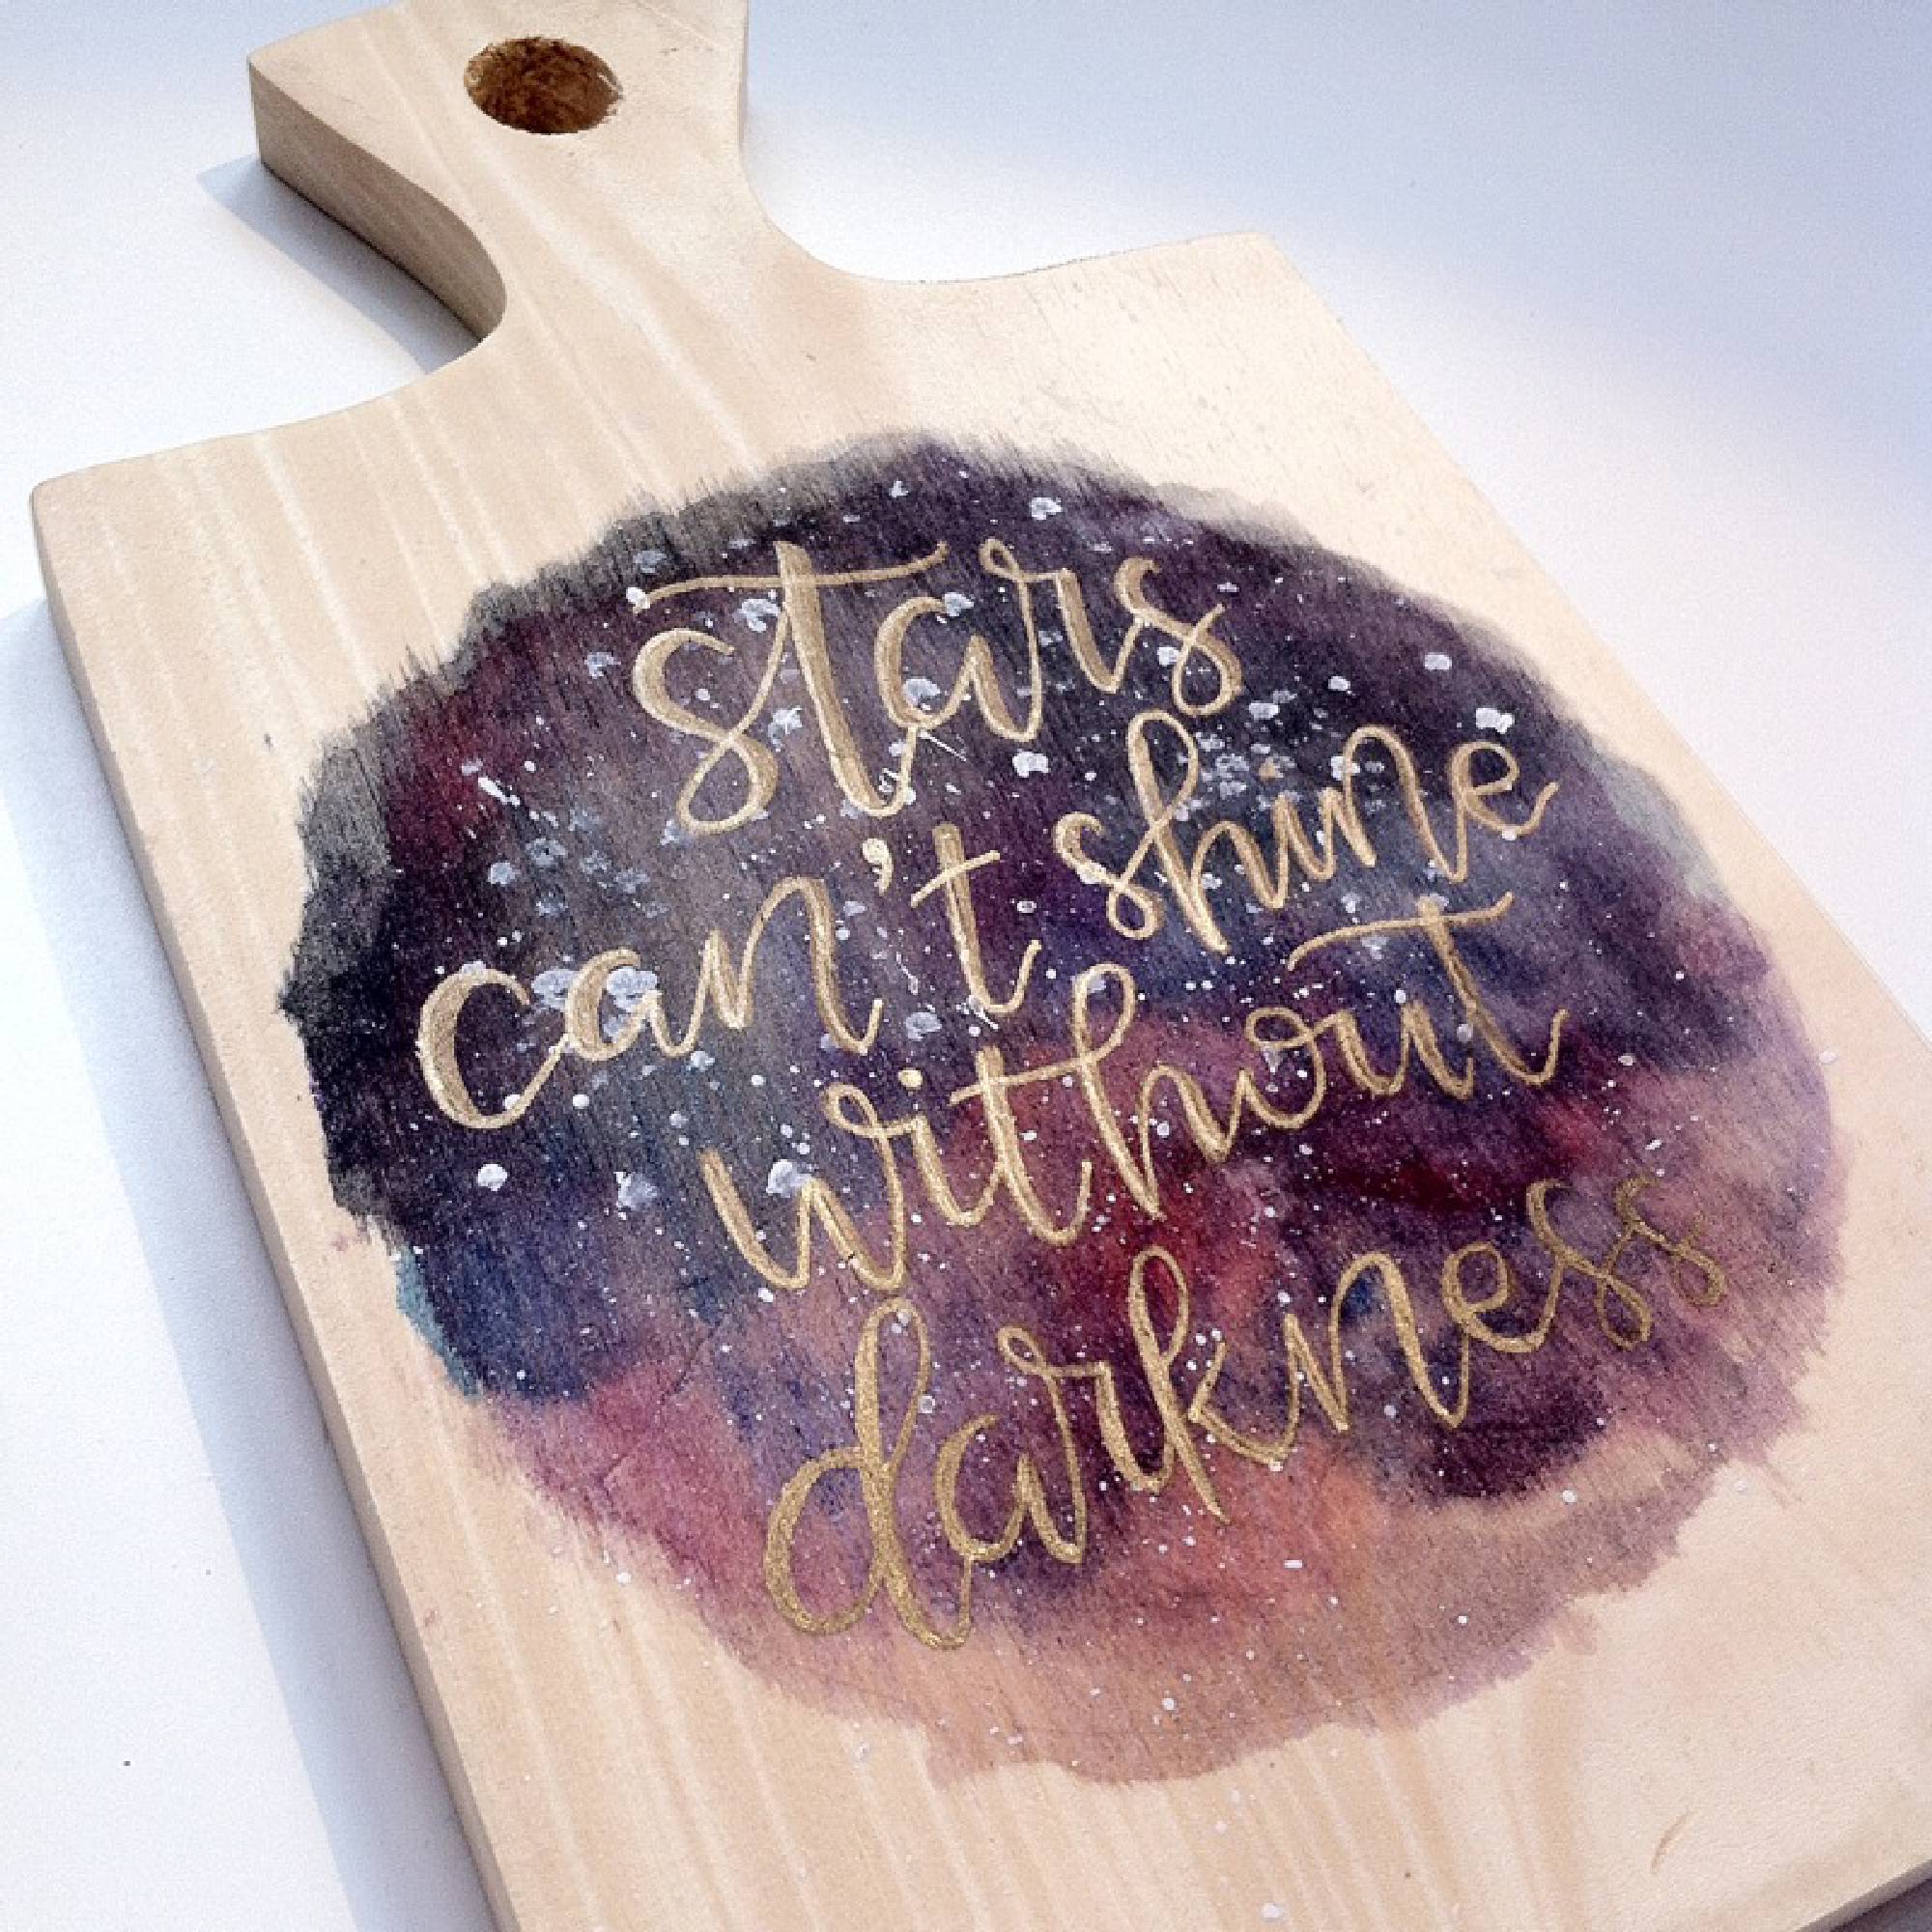 stars
can't shine
without
darkness